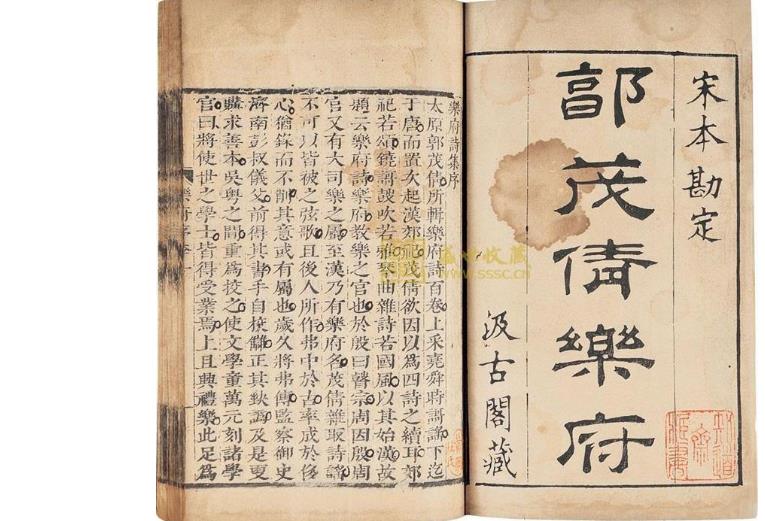 宋本勘定
郭茂倩樂府
汲古閣藏
樂府詩集序
太原郭茂倩所輯樂府詩百卷上采堯舜時謌謠下迄
于唐而置次起漢郊祀茂倩欲因以為四詩之續耳郊
祀若頌鐃謌鼓吹若雅琴曲雜詩若國風以其始漢故
題云樂府詩樂府教樂之官也於殷曰瞽宗周因殷周
官又有大司樂之屬至漢乃有樂府名茂倩雜取詩謠
不可以皆被之弦歌且後人所作弗中於古率成於侈
心猶錄而不削其意或有屬也歲久將弗傳監察御史
濟南彭叔儀父前得其書手自校讎正其缺譌及是更
購求善本吳粵之間重為校之使文學童萬元刻諸學
官曰將使世之學士皆得受業焉上且典禮樂此足為
樂府序
盛世收藏
www.sssc.cn